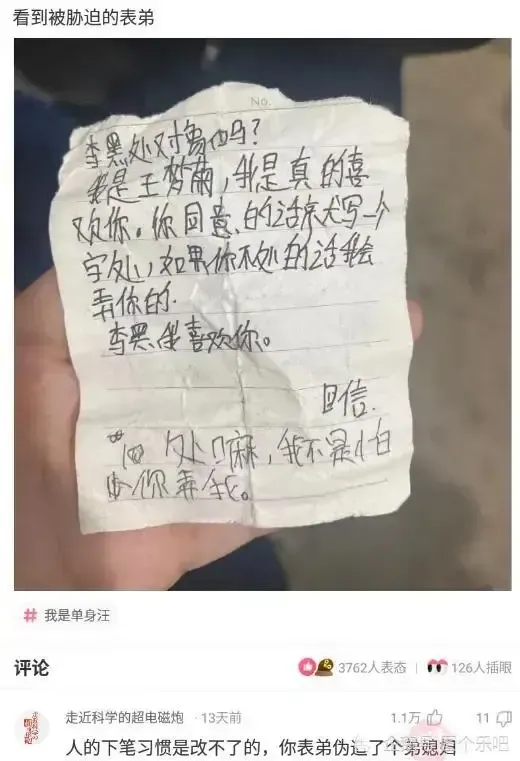 看到被胁迫的表弟
No.
李黑处对象吗?
我是王梦菊,我是真的喜
欢你。你同意的话就写一个
字处,如果你不处的话我会
弄你的.
李黑我喜欢你。
回信.
处嘛,我不是怕
你弄我。
# 我是单身汪
评论
3762人表态
126人插眼
走近科学的超电磁炮 · 13天前
1.1万
11
人的下笔习惯是改不了的,你表弟伪造了个弟媳妇